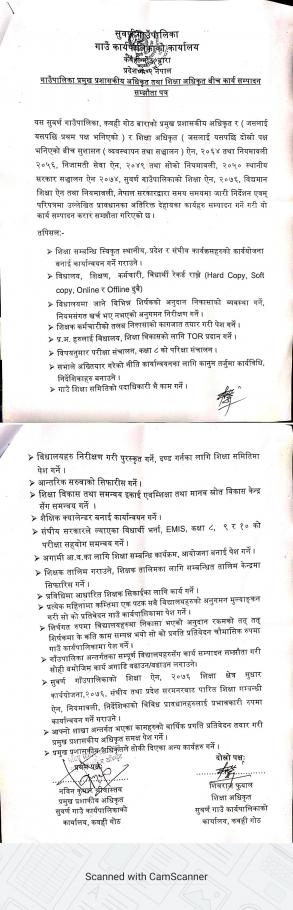 सुवर्ण गाउँपालिका
गाउँ कार्यपालिकाको कार्यालय
प्रदेश नेपाल
गाउँपालिका प्रमुख प्रशासकीय अधिकृत तथा शिक्षा अधिकृत बीच कार्य सम्पादन
सम्झौता पत्र
यस सुवर्ण गाउँपालिका, कवही गोठ बाराको प्रमुख प्रशासकीय अधिकृत र ( जसलाई
यसपछि प्रथम पक्ष भनिएको ) र शिक्षा अधिकृत ( जसलाई यसपछि दोस्रो पक्ष
भनिएको बीच सुशासन ( व्यवस्थापन तथा सञ्चालन ) ऐन, २०६४ तथा नियमावली
२०६५, निजामती सेवा ऐन, २०४९ तथा सोको नियमावली, २०५० स्थानीय
सरकार सञ्चालन ऐन २०७४, सुवर्ण गाउँपालिकाको शिक्षा ऐन, २०७६, विद्यमान
शिक्षा ऐन तथा नियमावली, नेपाल सरकारद्वारा समय समयमा जारी निर्देशन एवम्
परिपत्रमा उल्लेखित प्रावधानका अतिरिक्त देहायका कार्यहरु सम्पादन गर्ने गरी यो
कार्य सम्पादन करार सम्झौता गरिएको छ ।
तपिसल:-
➢ शिक्षा सम्बन्धि स्विकृत स्थानीय, प्रदेश र संघीय कार्यक्रमहरुको कार्ययोजना
बनाई कार्यान्वयन गर्ने गराउने ।
➢ विद्यालय, शिक्षण, कर्मचारी, बिद्यार्थी रेकर्ड राख्ने (Hard Copy, Soft
copy, Online र Offline दुबै)
➢ विद्यालयमा जाने विभिन्न शिर्षकको अनुदान निकासाको ब्यवस्था गर्ने,
नियमसंगत खर्च भए नभएको अनुगमन निरीक्षण गर्ने ।
➢ शिक्षक कर्मचारीको तलब निकासाको कागजात तयार गरी पेश गर्ने ।
➢ प्र.अ. हरुलाई विद्यालय, शिक्षा विकासको लागि TOR प्रदान गर्ने ।
➢ विषयनुसार परीक्षा संचालन, कक्षा ८ को परिक्षा संचालन ।
➢ सभाले अख्तियार गरेको नीति कार्यान्वयनका लागि कानुन तर्जुमा कार्यविधि,
निर्देशिकाहरु बनाउने ।
➢ शिक्षा समितिको पदाधिकारी भै काम गर्ने ।
➢ विद्यालयहरु निरीक्षण गरी पुरस्कृत गर्ने, दण्ड गर्नका लागि शिक्षा समितिमा
पेश गर्ने ।
➢ आन्तरिक सरुवाको सिफारीस गर्ने ।
➢ शिक्षा विकास तथा समन्वय इकाई एवम् शिक्षा तथा मानव स्रोत विकास केन्द्र
सँग समन्वय गर्ने ।
➢ शैक्षिक क्यालेन्डर बनाई कार्यान्वयन गर्ने ।
➢ संघीय सरकारले ल्याएका विद्यार्थी भर्ना, EMIS, कक्षा ८, ९ र १० को
परीक्षा सहयोग समन्वय गर्ने ।
➢ अगामी आ.व.का लागि शिक्षा सम्बन्धि कार्यक्रम, आयोजना बनाई पेश गर्ने ।
➢ शिक्षक तालिम गराउने, शिक्षक तालिमका लागि सम्बन्धित तालिम केन्द्रमा
सिफारिस गर्ने ।
➢ प्रविधिमा आधारित शिक्षक सिकाईका लागि कार्य गर्ने ।
➢ प्रत्येक महिनामा कम्तिमा एक पटक सबै विद्यालयहरुको अनुगमन मुल्याङ्कन
गरी सो को प्रतिवेदन गाउँ कार्यपालिकामा पेश गर्ने ।
➢ शिर्षगत रुपमा विद्यालयहरुमा निकासा भएको अनुदान रकमको तत् तत्
शिर्षकमा के कति काम सम्पन्न भयो सो को प्रगति प्रतिवेदन चौमासिक रुपमा
गाउँ कार्यपालिकामा पेश गर्ने ।
➢ गाँउपालिका अन्तर्गतका सम्पूर्ण विद्यालयहरुसँग कार्य सम्पादन सम्झौता गरी
सोही बमोजिम कार्य अगाडि बढाउन/बढाउन लगाउने।
➢ सुवर्ण गाउँपालिकाको शिक्षा ऐन, २०७६ शिक्षा क्षेत्र सुधार
कार्ययोजना,२०७६, संघीय तथा प्रदेश सरमनरबाट पारित शिक्षा सम्वन्धी
ऐन, नियमावली, निर्देशिकाको विविध प्रावधानहरुलाई प्रभावकारी रुपमा
कार्यान्वयन गर्ने गराउने ।
➢ आफ्नो शाखा अन्तर्गत भएका कामहरुको बार्षिक प्रगति प्रतिवेदन तयार गरी
प्रमुख प्रशासकीय अधिकृत समक्ष पेश गर्ने ।
➢ प्रमुख प्रशासकीय अधिकृतले तोकी दिएका अन्य कार्यहरु गर्ने ।
प्रथम पक्ष:
दोस्रो पक्ष:
नविन कुमार श्रीवास्तव
प्रमुख प्रशाकीय अधिकृत
सुवर्ण गाउँ कार्यपालिकाको
कार्यालय, कवही गोठ
शिवराज फुयाल
शिक्षा अधिकृत
सुवर्ण गाउँ कार्यपालिकाको
कार्यालय, कवही गोठ
Scanned with CamScanner